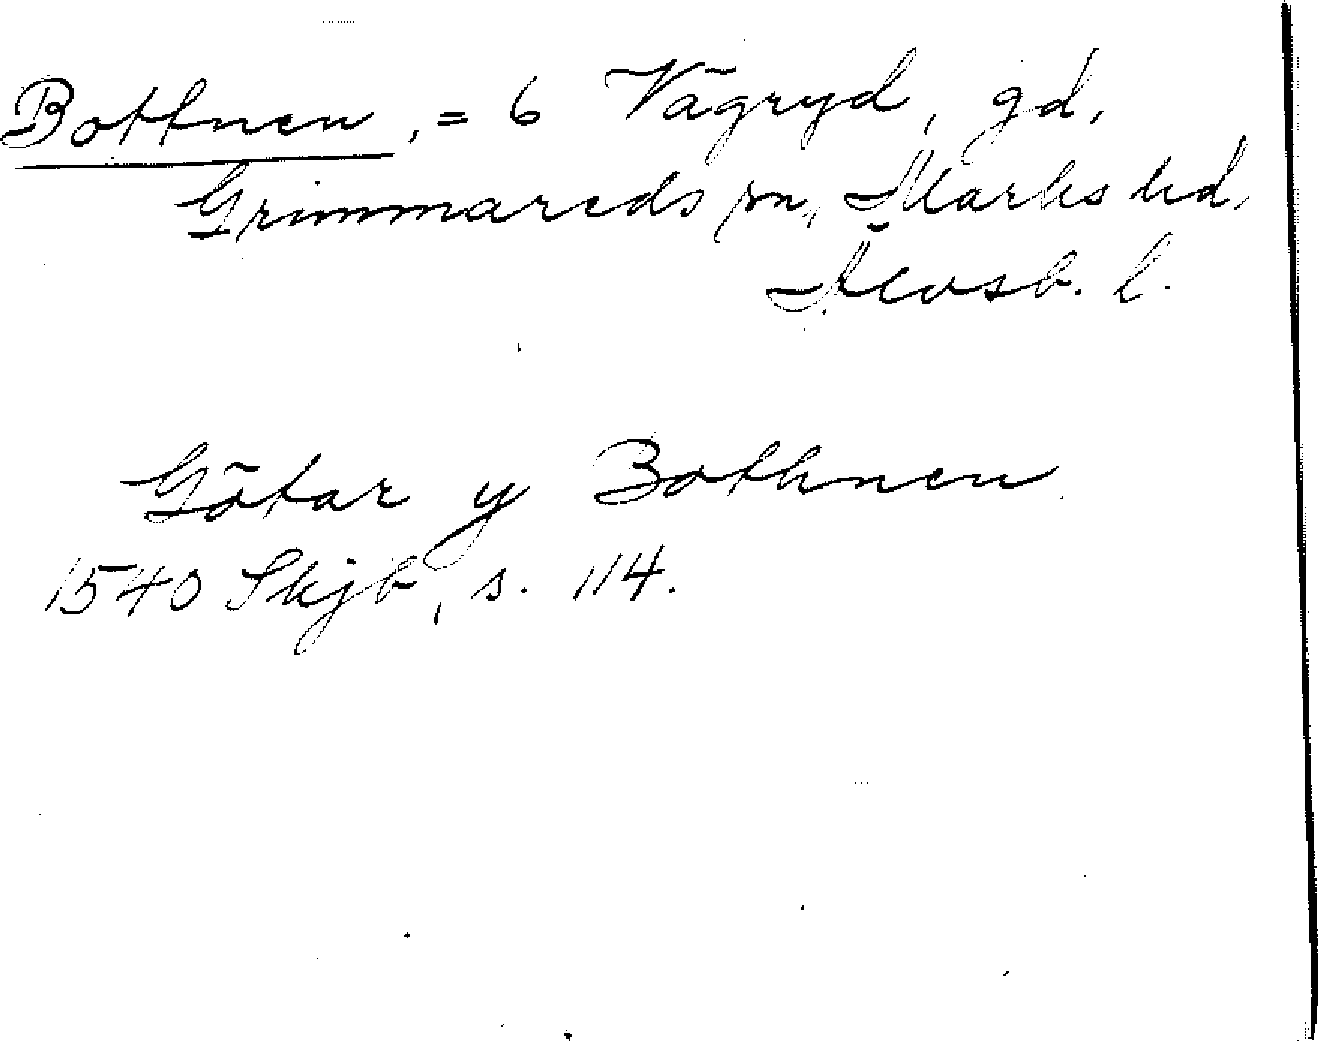 Bottnen, = 6 Vägryd, gd,
Grimmareds sn, Marks hd,
Älvsb. l.
Götar y Bothnen
1540 Skjb, s. 114.